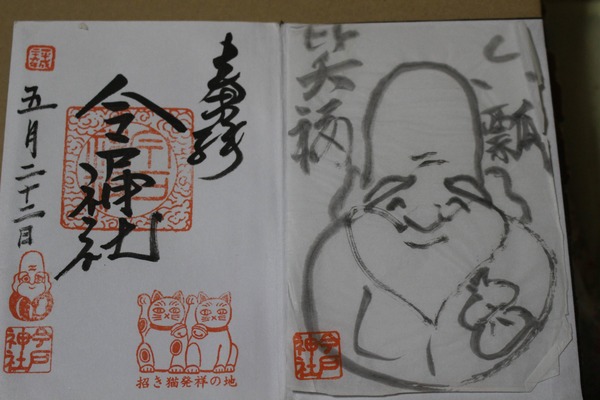 奉拝
今戸神社
五月二十二日
今戸
神社
招き猫発祥の地
笑福
今戸
神社